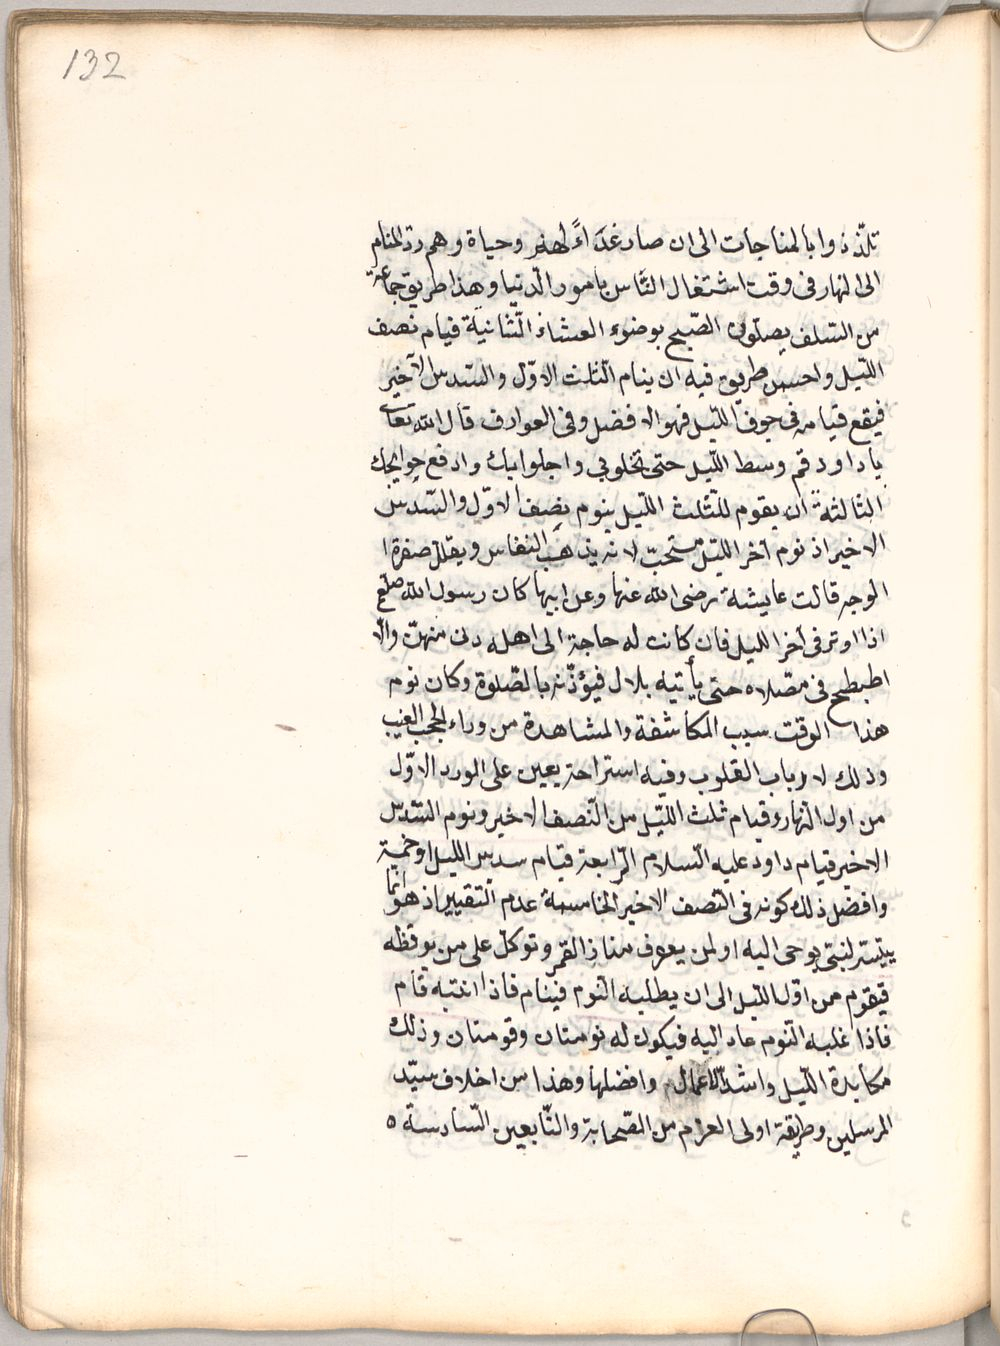 132
تلّذذوا بالمناجات الى ان صار غذاءً لهم وحياة وهم ردّ المنام
الى النهار فى وقت اشتغال النّاس بامور الدّنيا وهذا طريق جماعة
من السّلف يصلّون الصّبح بوضوء العشاء الثّانية قيام نصف
اللّيل واحسن طريق فيه ان ينام الثّلث الاوّل والسّدس الآخير
فيقع قيامه فى جوف اللّيل فهو الافضل وفى العوارف قال الله تعالى
يا داود قم وسط اللّيل حتى تخلو بي واجلوا بك وادفع حوايجك
الثّالثة ان يقوم للثّلث اللّيل بنوم نصف الاوّل والسّدس
الاخير اذ نوم آخر اللّيل مستحبّ لانه يذهب النفاس ويقلل صفرة ا
لوجه قالت عايشة رضى الله عنها وعن ابيها كان رسول الله صلعم
اذا اوتر فى آخر الليل فان كانت له حاجة الى اهله دنى منهنّ والّا
اضطجع فى مصّلاه حتى يأتيه بلال فيؤذّنه بالصّلوة وكان نوم
هذا الوقت سبب المكاشفة والمشاهدة من وراء الحجب الغيب
وذلك لارباب القلوب وفيه استراحة يعين على الورد الاوّل
من اول النّهار وقيام ثلث اللّيل من النّصف الاخير ونوم السّدس
الاخير قيام داود عليه السّلام الرّابعة قيام سدس الليل او خمسة
وافضل ذلك كونه فى النّصف الاخير الخامسة عدم التّقيير اذ هو انّما
يتيسّر لنبىّ يوحى اليه او لمن يعرف منازل القمر وتوكّل على من يوقظه
فيقوم من اوّل اللّيل الى ان يطلبه النّوم فينام فاذا انتبه قام
فاذا غلبه النّوم عاد اليه فيكون له نومتان وقومتان وذلك
مكابدة اللّيل واشدّ الاعمال وافضلها وهذا من اخلاق سيّد
المرسلين وطريقة اولى العزم من الصّحابة والتّابعين السّادسة ٥